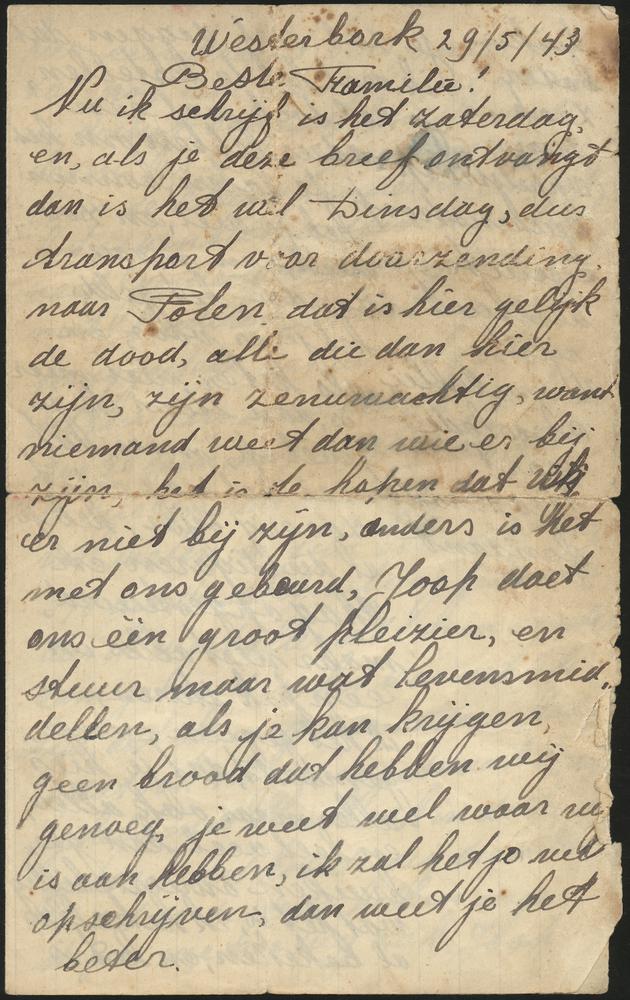 Westerbork 29/5/43
Beste Familie!
Nu ik schrijf is het zaterdag,
en, als je deze breef ontvangt
dan is het wel Dinsdag, dus
transport voor doorzending
naar Polen dat is hier gelijk
de dood, alle die dan hier
zijn, zijn zenuwachtig, want
niemand weet dan wie er bij
zijn, het is te hopen dat wij
er niet bij zijn, anders is het
met ons gebeurd, Joop doet
ons één groot pleizier, en
stuur maar wat levensmid,
dellen, als je kan krijgen,
geen brood dat hebben wij
genoeg, je weet wel waar
is aan hebben, ik zal het je wel
opschrijven, dan weet je het
beter.